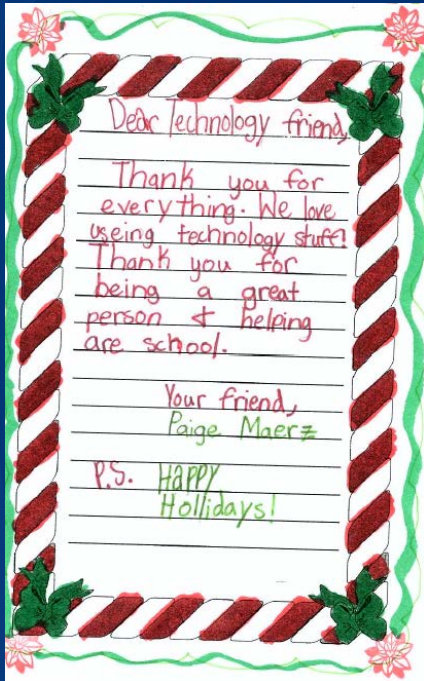 Dear Technology friend,
Thank you for
everything. We love
useing technology stuff!
Thank you for
being a great
person & helping
are school.
Your friend,
Paige Maerz
P.S. HAPPY
Hollidays!